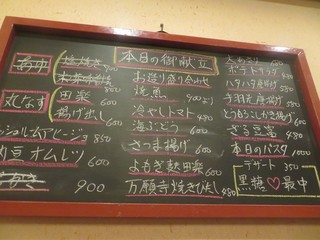 本日の御献立
お造り盛り合わせ
焼魚 400より
冷やしトマト 480
海ぶどう 600
さつま揚げ 600
よもぎ麩田楽 600
万願寺焼きびたし 480
塩焼き 600
丸なす
田楽 600
揚げ出し 600
マッシュルームアヒージョ 850
納豆オムレツ
900
ポテトサラダ
ハタハタ唐揚げ
手羽先唐揚げ 600
とうもろこしかき揚げ 600
ざる豆腐 480
本日のパスタ 1000
デザート 350
黒糖♡最中